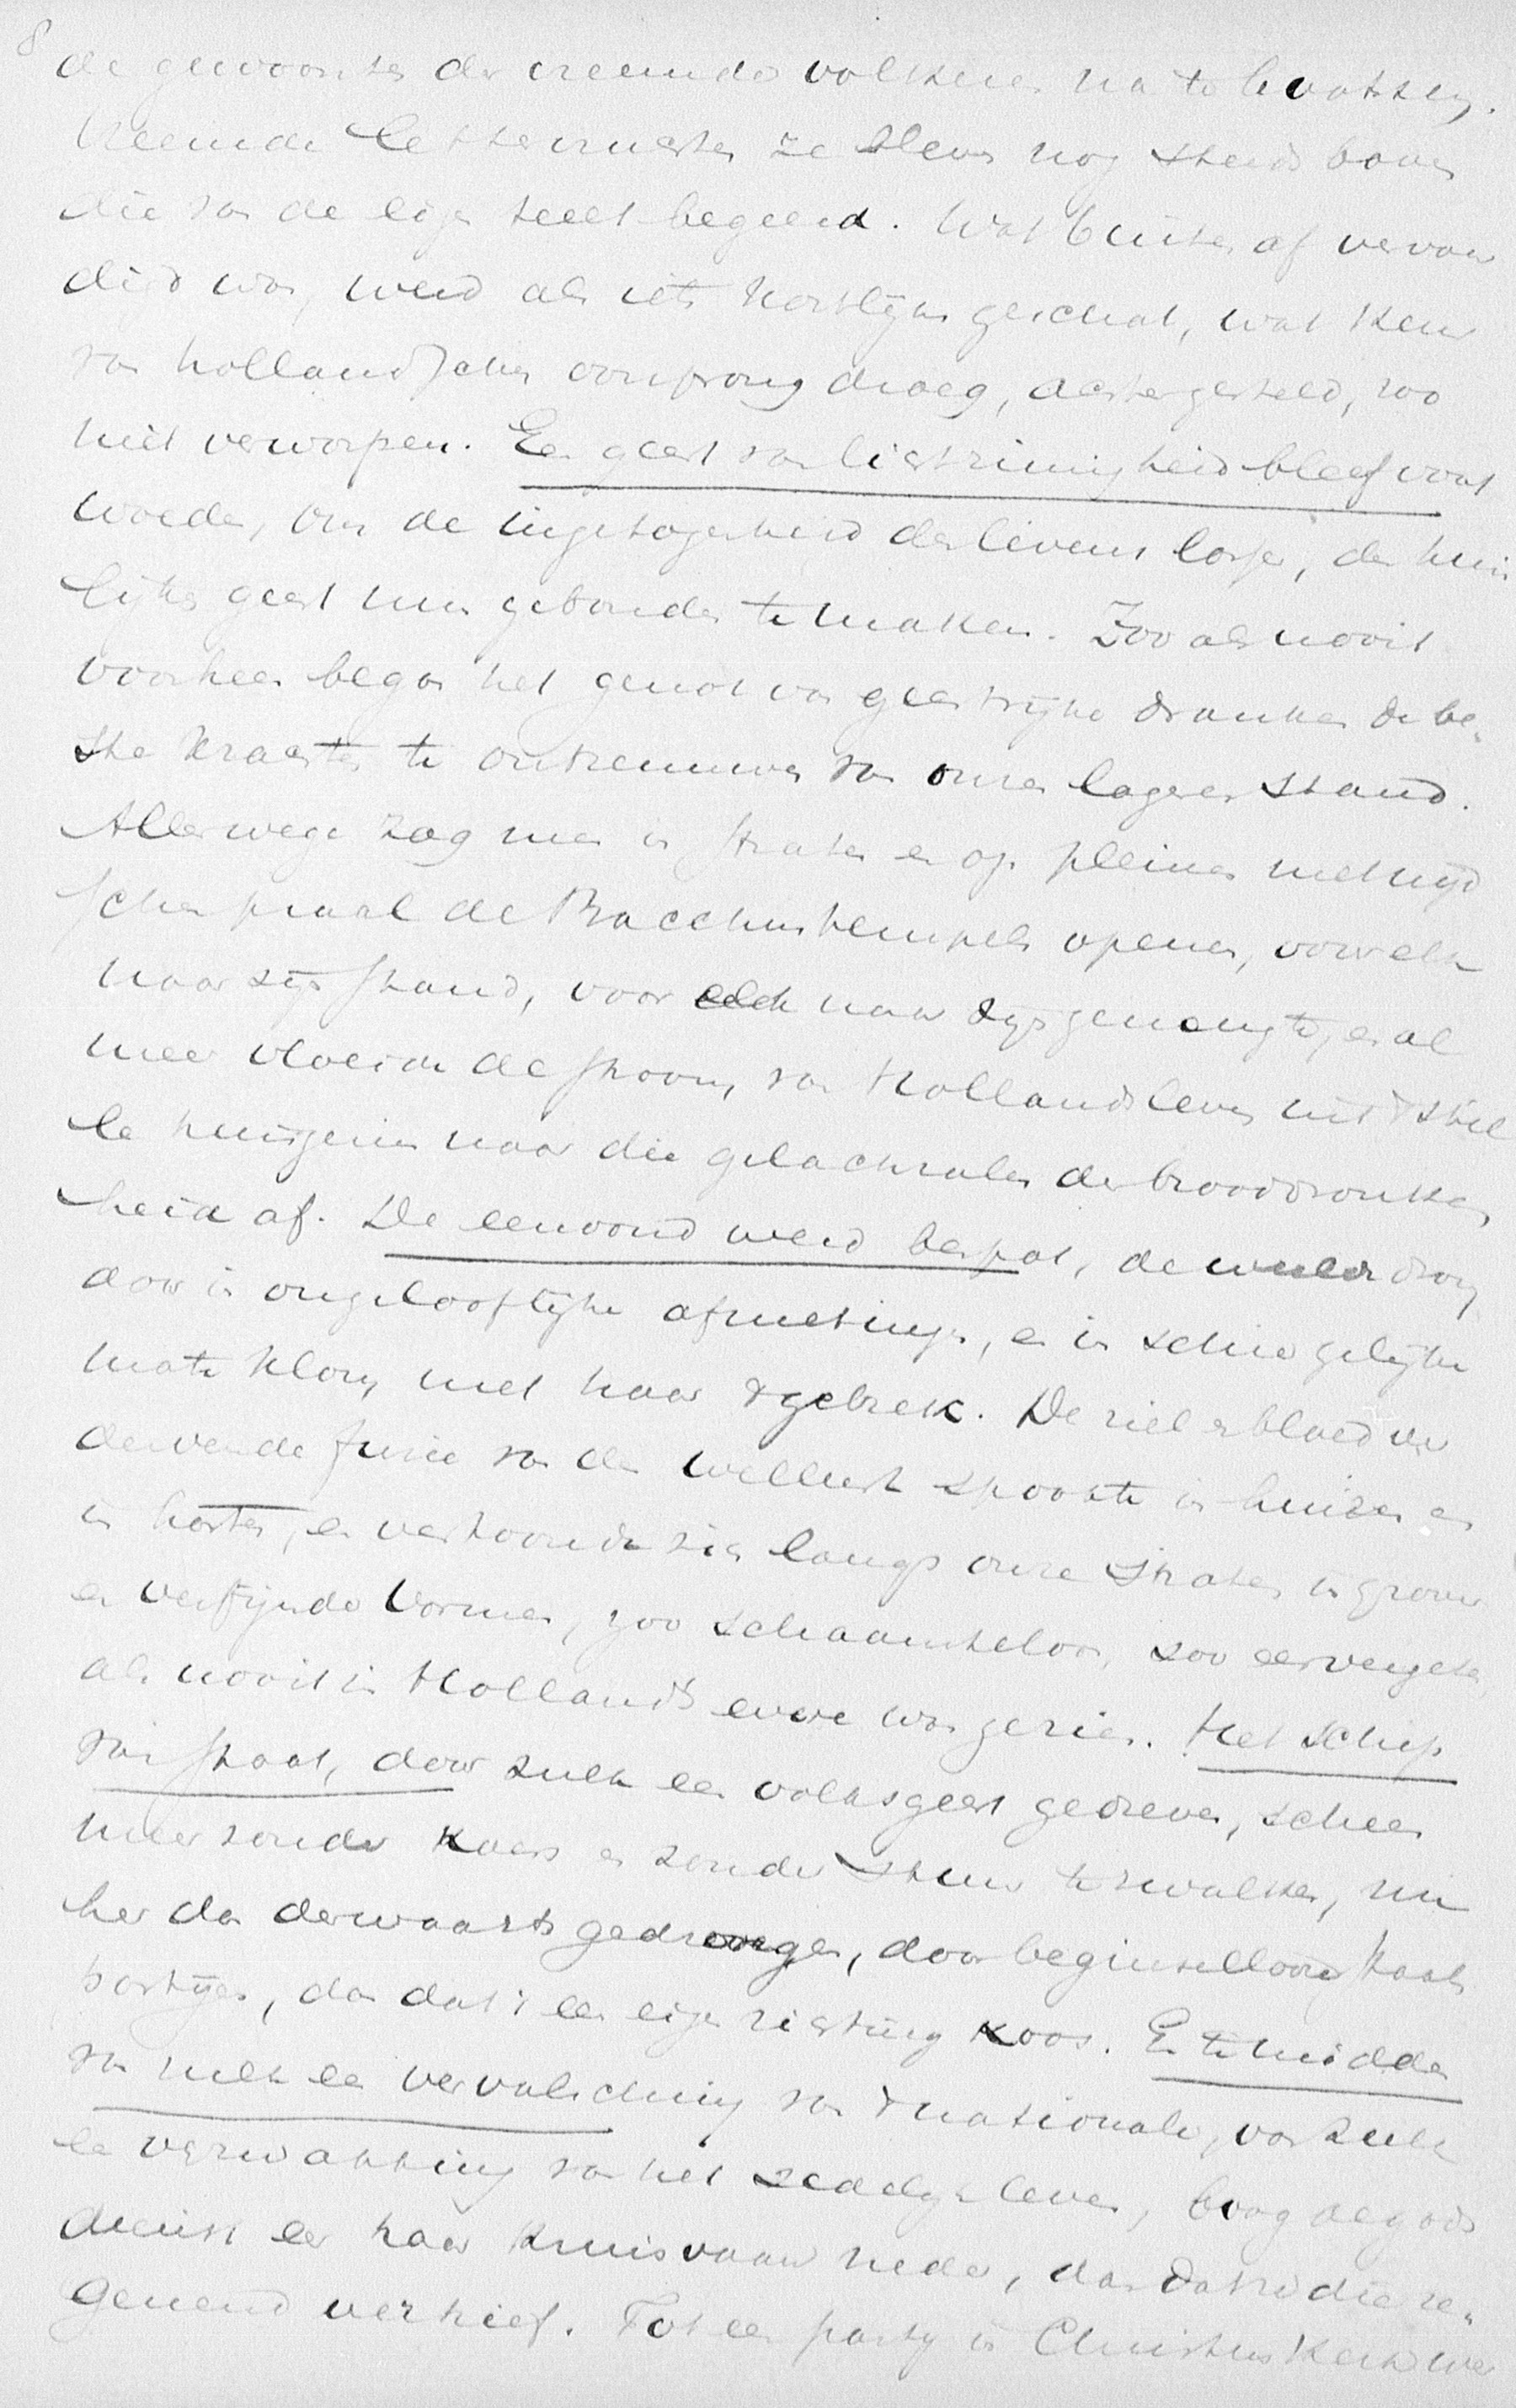 8
de gewoontes der vreemde volkeren na te bootsen.
Vreemde lettervruchten ze bleven nog steeds boven
die van de eigen teelt begeerd. Wat buiten af vervaar
digd was, werd als iets kostlijks geschat, wat keur
van hollandschen oorsprong droeg, achtergesteld, zoo
niet verworpen. Een geest van lichtzinnigheid bleef voort
woeden, om de ingetogenheid des levens losser, den huis
lijken geest min gebonden te maken. Zoo als nooit
voorheen begon het genot van geestrijke dranken de be-
ste krachten te ontzenuwen van onzen lageren stand.
Allerwege zag men in straten en op pleinen met nijd
schen praal de Bacchustempels openen, voor elk
naar zijn stand, voor elck naar zijn geneugte, en al
meer vloeide de stroom van Hollands leven uit 't stil
le huisgezin naar die gelachzalen der brooddronken
heid af. De eenvoud werd bespot, de weelde drong
door in ongelooflijke afmetingen, en in schier gelijke
mate klom met haar 't gebrek. De ziel en bloed ver
dervende furie van den wellust spookte in huizen en
in harten, en vertoonde zich langs onze straten in grove
en verfijnde vormen, zoo schaamteloos, zoo eervergeten
als nooit in Hollands eeuwe was gezien. Het schip
van staat, door zulk een volksgeest gedreven, scheen
meer zonder koers en zonder stuur te zwalken, nu
her dan derwaarts gedrongen, door beginsellooze staats
partijen, dan dat 't een eigen richting koos. En te midden
van zulk een vervalsching van 't nationale, van zulk
een verwakking van het zedelijk leven, boog de gods
dienst eer haar kruisvaan neder, dan dat ze die ze-
genend verhief. Tot een party in Christus Kerk wer